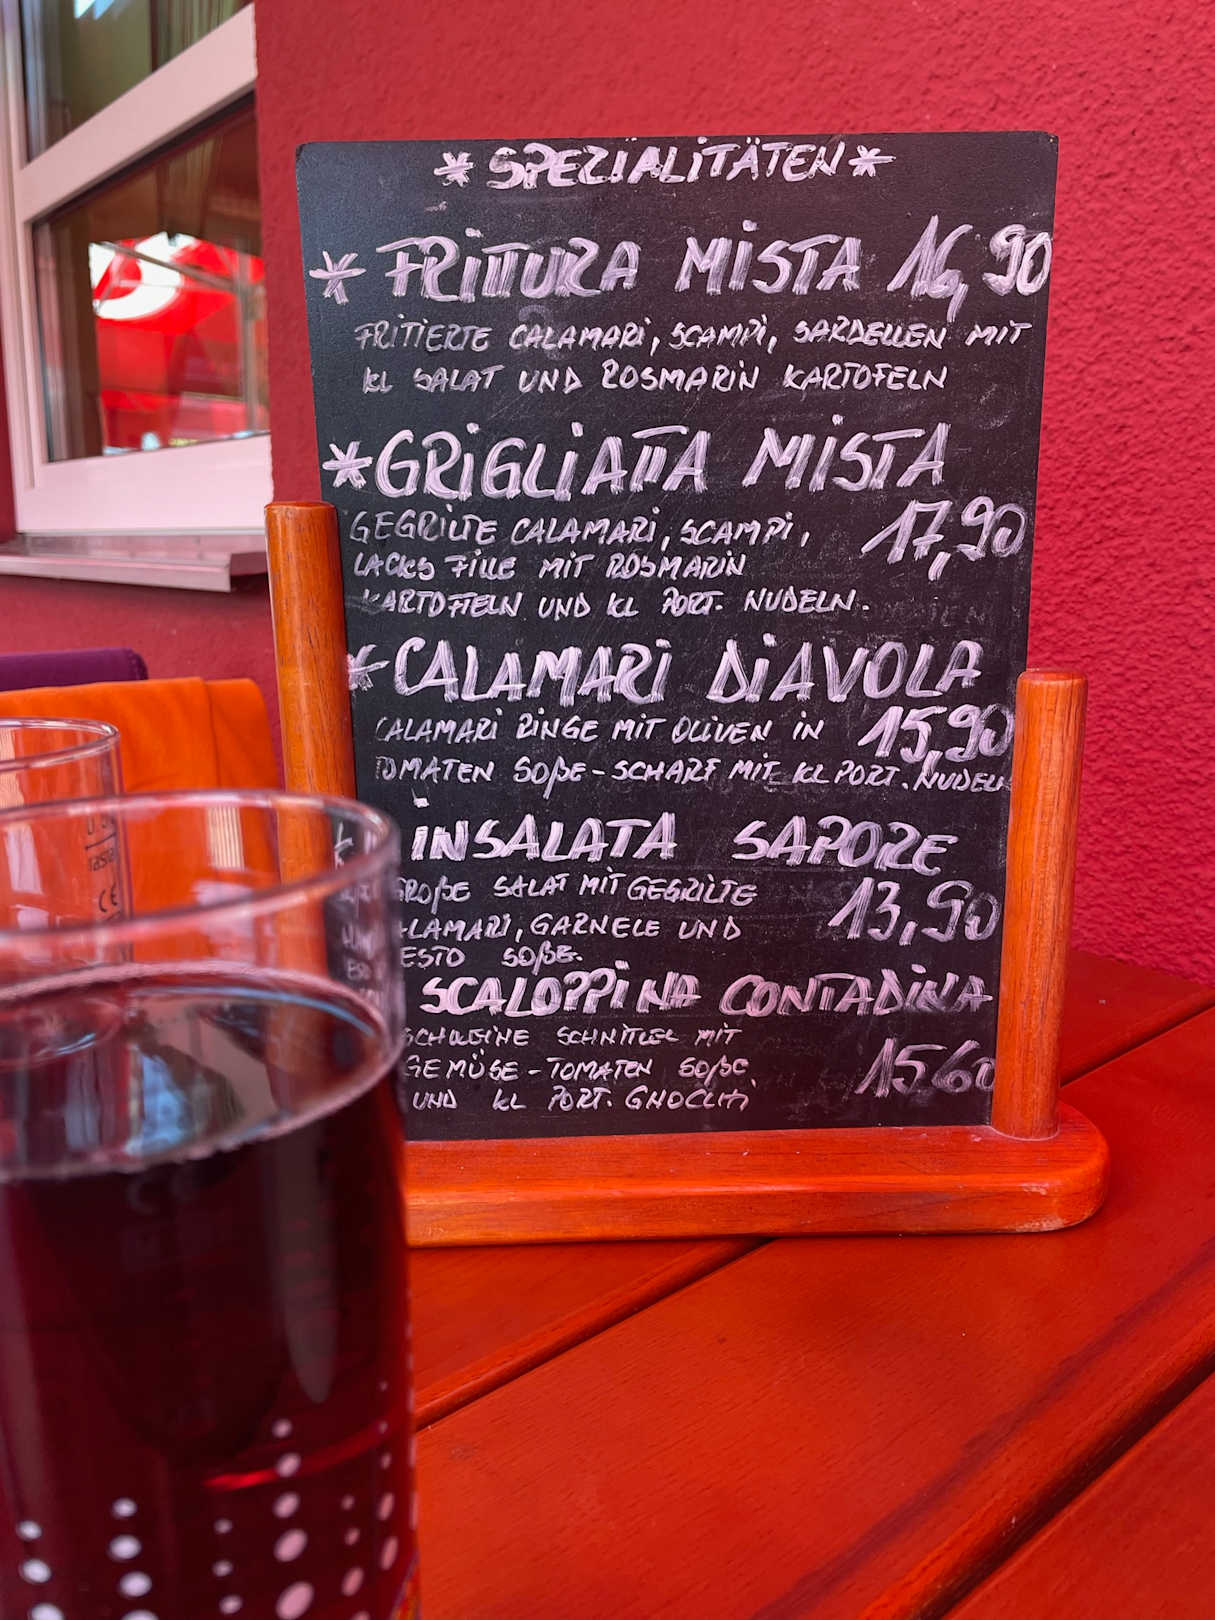 * SPEZIALITÄTEN *
* FRITTURA MISTA 16,90
FRITIERTE CALAMARI, SCAMPI, SARDELLEN MIT
KL SALAT UND ROSMARIN KARTOFELN
* GRIGLIATTA MISTA
GEGRILTE CALAMARI, SCAMPI,
17,90
LACKS FILLE MIT ROSMARIN
KARTOFFELN UND KL PORT. NUDELN.
* CALAMARI DIAVOLA
CALAMARI RINGE MIT OLIVEN IN 15,90
TOMATEN SOßE - SCHARF MIT KL PORT. NUDELN
INSALATA SAPORE
GROßE SALAT MIT GEGRILTE
ALAMARI, GARNELE UND 13,90
ESTO SOßE.
SCALOPPINA CONTADINA
SCHWEINE SCHNITZEL MIT
GEMÜSE - TOMATEN SOßE 15,60
UND KL PORT. GNOCCHI
CE